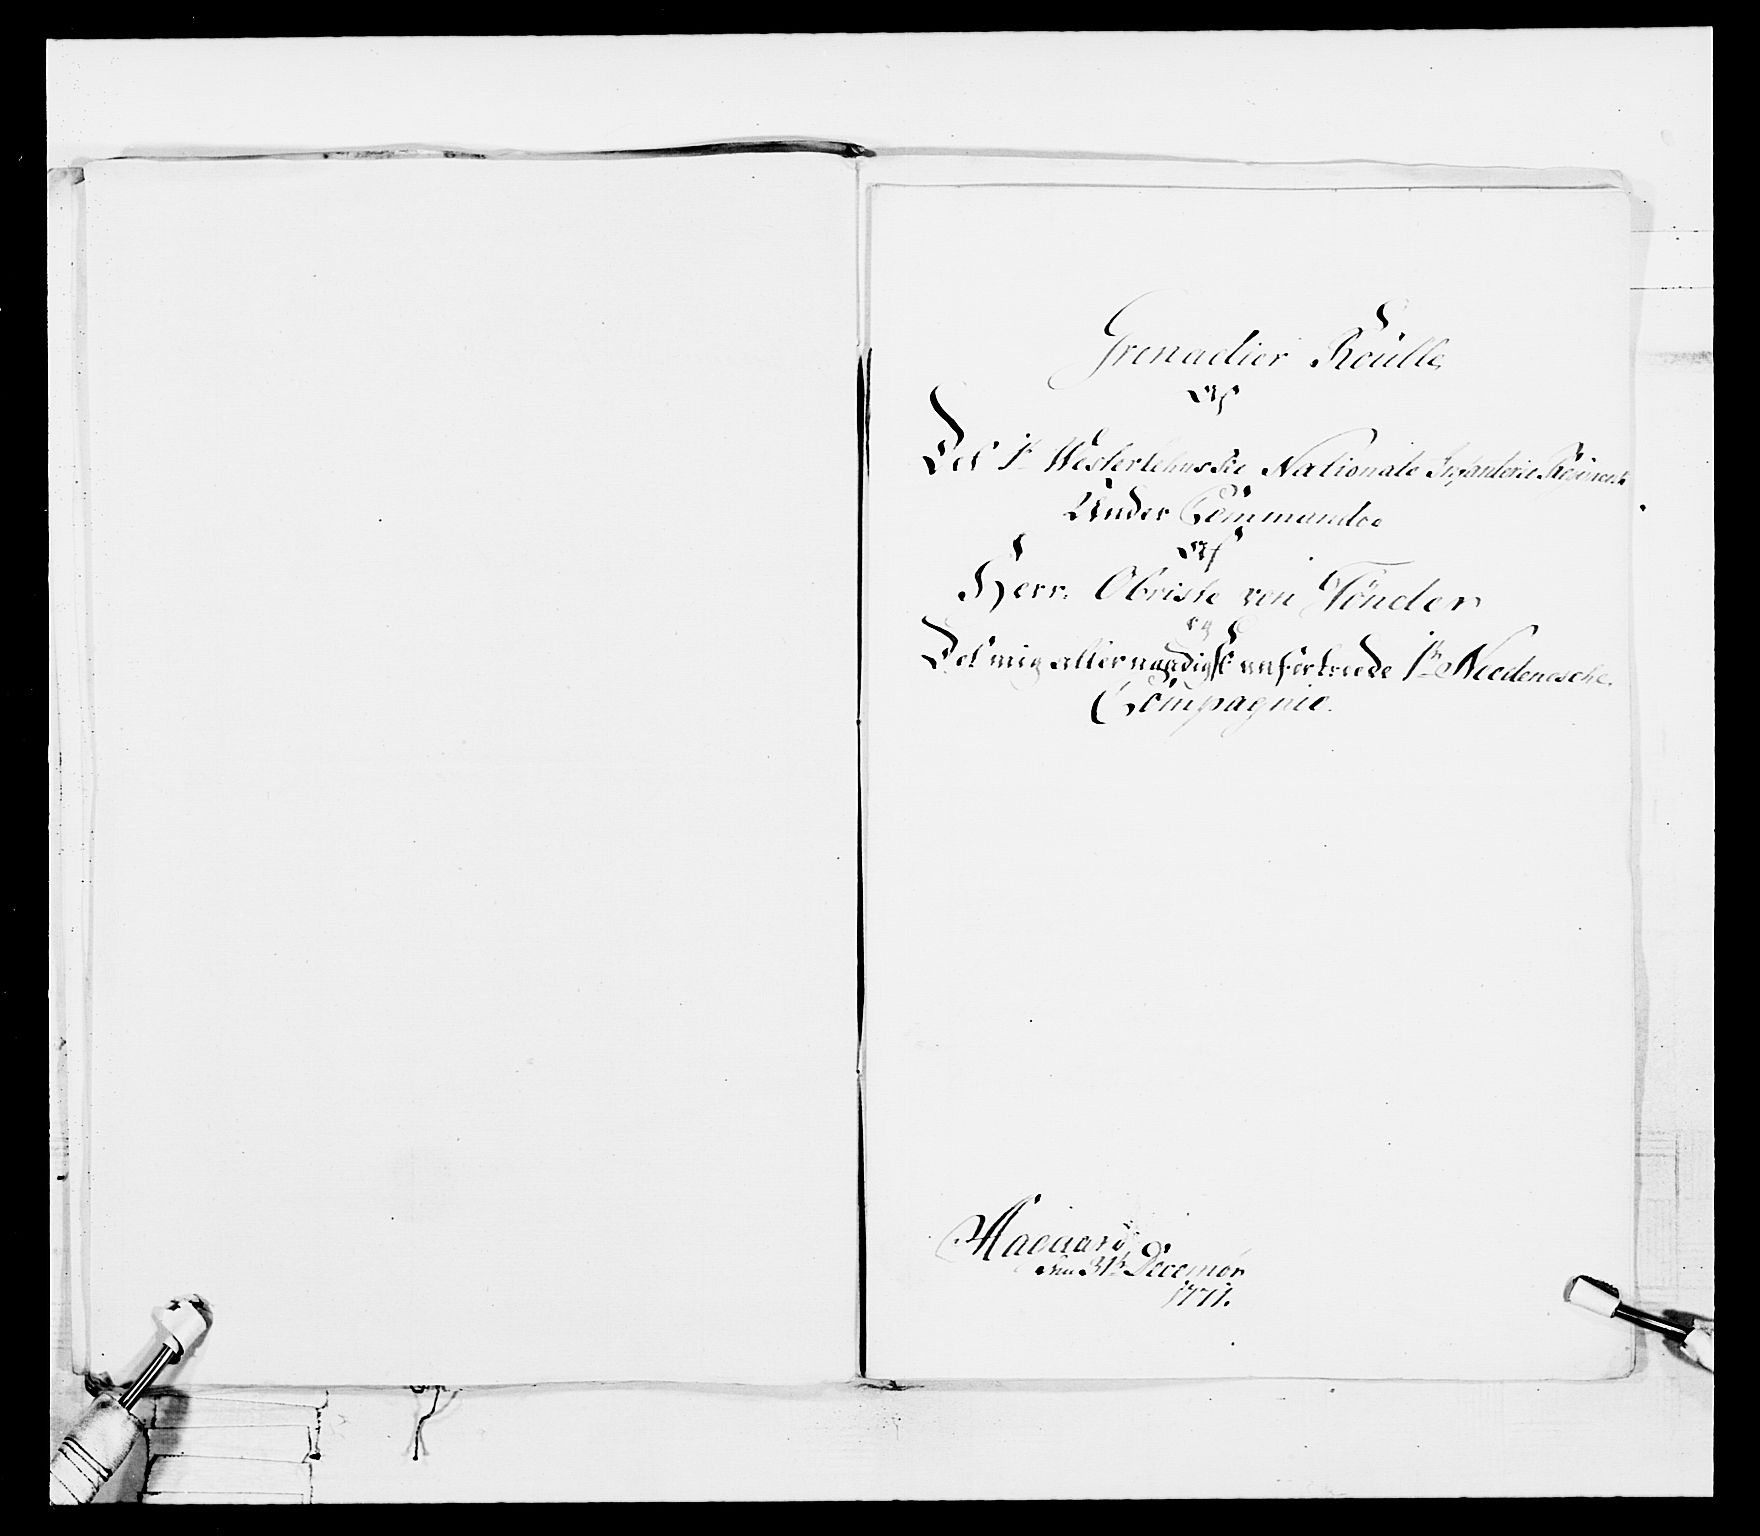 Grenadier Roülle
Af
Det 1te Westerlehnsske Nationale Infanterie Regiment
Under Commando
Af
Herr Obriste von Tönder
og
Det mig allernaadigst anfortroede 1te Needenesche
Compagnie.
Aagaard
den 31te Decembr
1771.